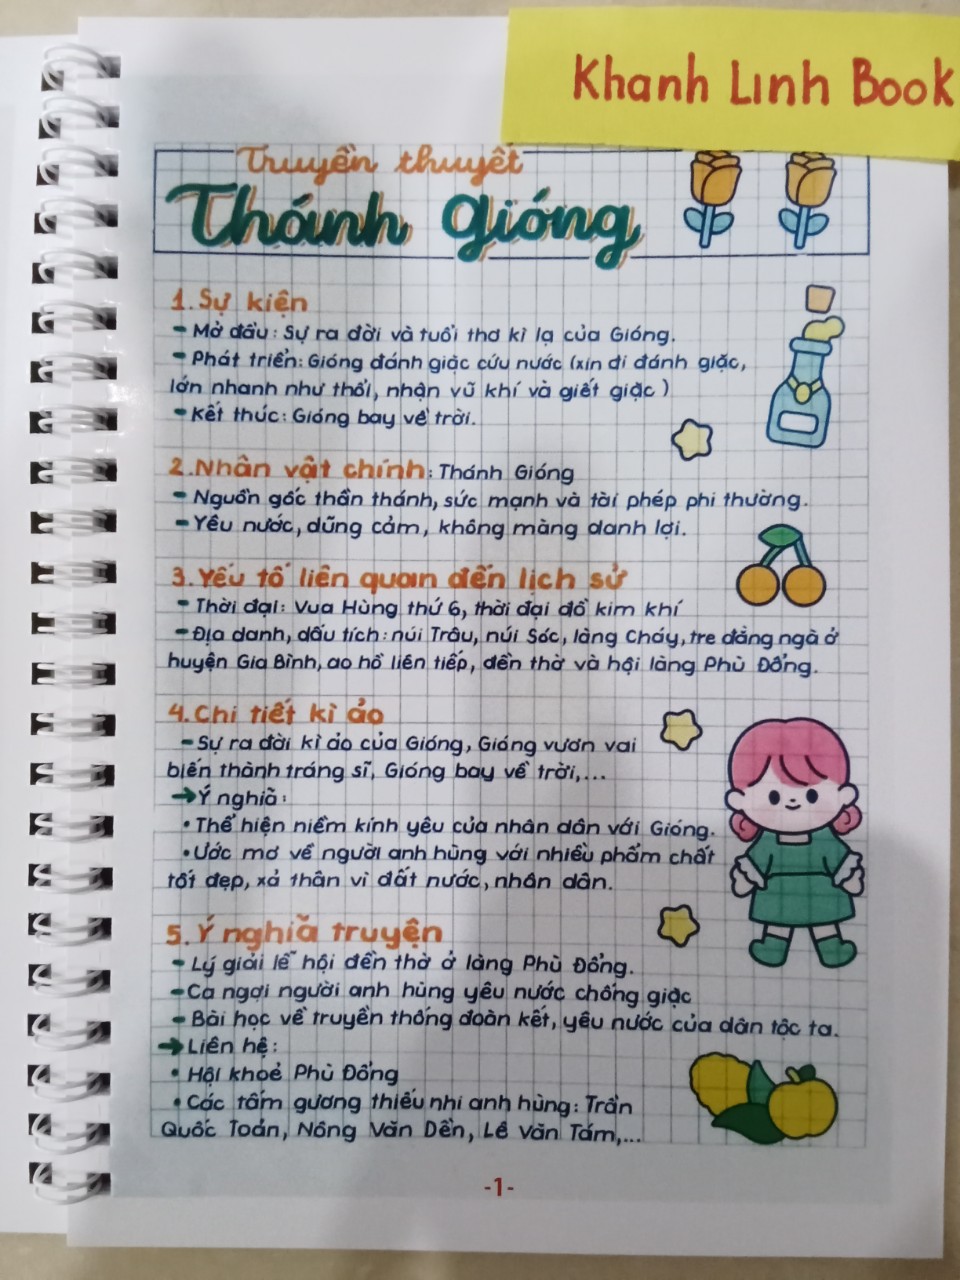 Khanh Linh Book
Truyền thuyết
Thánh Gióng
1. Sự kiện
- Mở đầu: Sự ra đời và tuổi thơ kì lạ của Gióng.
- Phát triển: Gióng đánh giặc cứu nước (xin đi đánh giặc,
lớn nhanh như thổi, nhận vũ khí và giết giặc)
- Kết thúc: Gióng bay về trời.
2. Nhân vật chính: Thánh Gióng
- Nguồn gốc thần thánh, sức mạnh và tài phép phi thường.
- Yêu nước, dũng cảm, không màng danh lợi.
3. Yếu tố liên quan đến lịch sử
- Thời đại: Vua Hùng thứ 6, thời đại đồ kim khí
- Địa danh, dấu tích: núi Trâu, núi Sóc, làng Cháy, tre đằng ngà ở
huyện Gia Bình, ao hồ liên tiếp, đền thờ và hội làng Phù Đổng.
4. Chi tiết kì ảo
- Sự ra đời kì ảo của Gióng, Gióng vươn vai
biến thành tráng sĩ, Gióng bay về trời,...
→ Ý nghĩa:
• Thể hiện niềm kính yêu của nhân dân với Gióng.
• Ước mơ về người anh hùng với nhiều phẩm chất
tốt đẹp, xả thân vì đất nước, nhân dân.
5. Ý nghĩa truyện
- Lý giải lễ hội đền thờ ở làng Phù Đổng.
- Ca ngợi người anh hùng yêu nước chống giặc
- Bài học về truyền thống đoàn kết, yêu nước của dân tộc ta.
→ Liên hệ:
• Hội khoẻ Phù Đổng
• Các tấm gương thiếu nhi anh hùng: Trần
Quốc Toản, Nông Văn Dền, Lê Văn Tám,...
-1-